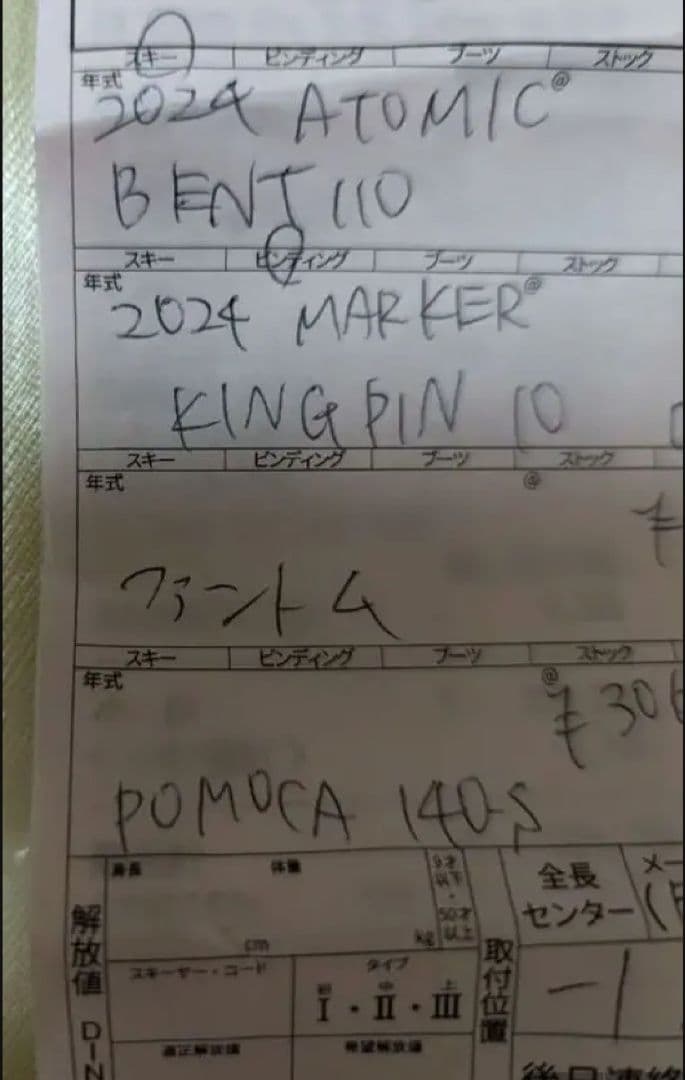 スキー ビンディング ブーツ ストック
年式 @
2024 ATOMIC
BENT 110
スキー ビンディング ブーツ ストック
年式 @
2024 MARKER
KINGPIN 10
スキー ビンディング ブーツ ストック
年式 @
¥
ファントム
スキー ビンディング ブーツ ストック
年式 @
¥30
POMOCA 140-S
身長 体重 9才以下・50才以上
cm kg
解放値 DIN
スキーヤー・コード タイプ
初 中 上
I・II・III
適正解放値 希望解放値
取付位置
全長
センター
-1
後日連絡